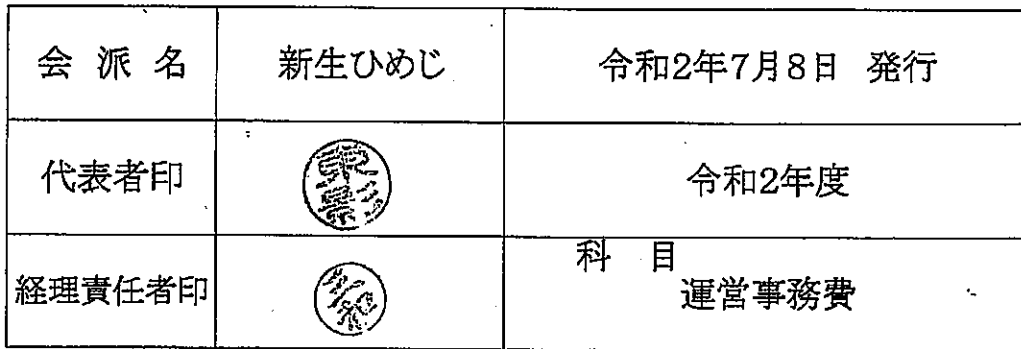 会派名 新生ひめじ 令和2年7月8日 発行
代表者印 令和2年度
経理責任者印 科目
運営事務費